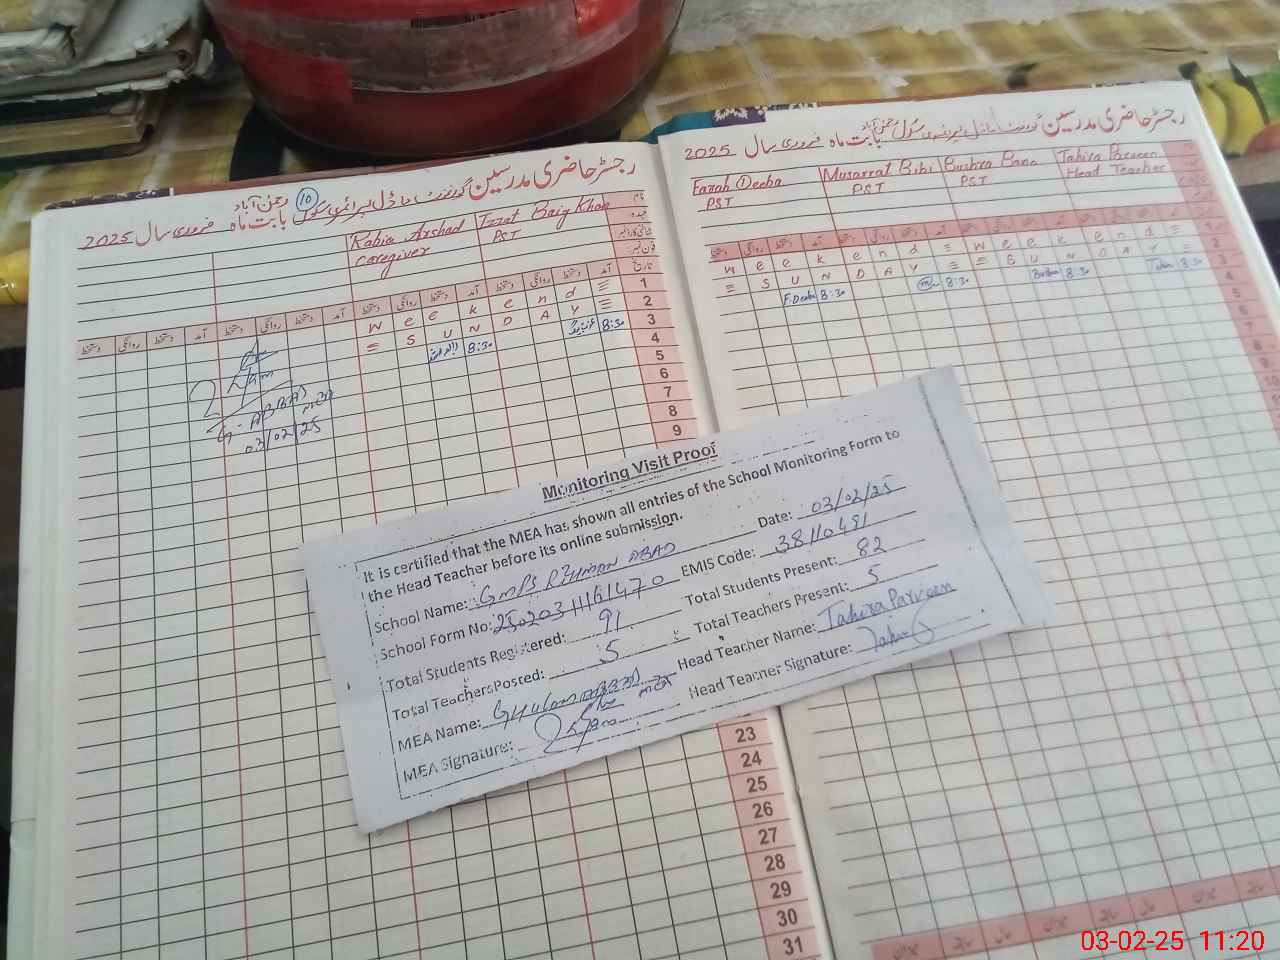 رجسٹر حاضری مدرسین گورنمنٹ ماڈل پرائمری سکول رحمن آباد
بابت ماہ فروری سال 2025
10
Rabia Arshad
Caregiver
Izzat Baig Khan
PST
تاریخ
آمد دستخط روانگی دستخط آمد دستخط روانگی دستخط آمد دستخط روانگی دستخط
1
2
3
4
5
6
7
8
9
W e e k e n d
= S U N D A Y =
8:30
8:30
03/02/25
23
24
25
26
27
28
29
30
31
رجسٹر حاضری مدرسین گورنمنٹ ماڈل پرائمری سکول رحمن آباد
بابت ماہ فروری سال 2025
Farah Deeba
PST
Musarrat Bibi
PST
Bushra Bano
PST
Tahira Parveen
Head Teacher
W e e k e n d = W e e k e n d =
= S U N D A Y = = S U N D A Y =
F.Deeba 8:30 8:30 Bushra 8:30 Tahira 8:30
Monitoring Visit Proof
It is certified that the MEA has shown all entries of the School Monitoring Form to
the Head Teacher before its online submission.
Date: 03/02/25
School Name: GMPS REHMAN ABAD
EMIS Code: 38110491
School Form No: 25020311161470
Total Students Present: 82
Total Students Registered: 91
Total Teachers Present: 5
Total Teachers Posted: 5
Head Teacher Name: Tahira Parveen
MEA Name: Ghulam ABBAS
Head Teacher Signature: Tahira
MEA Signature: MEA
03-02-25 11:20